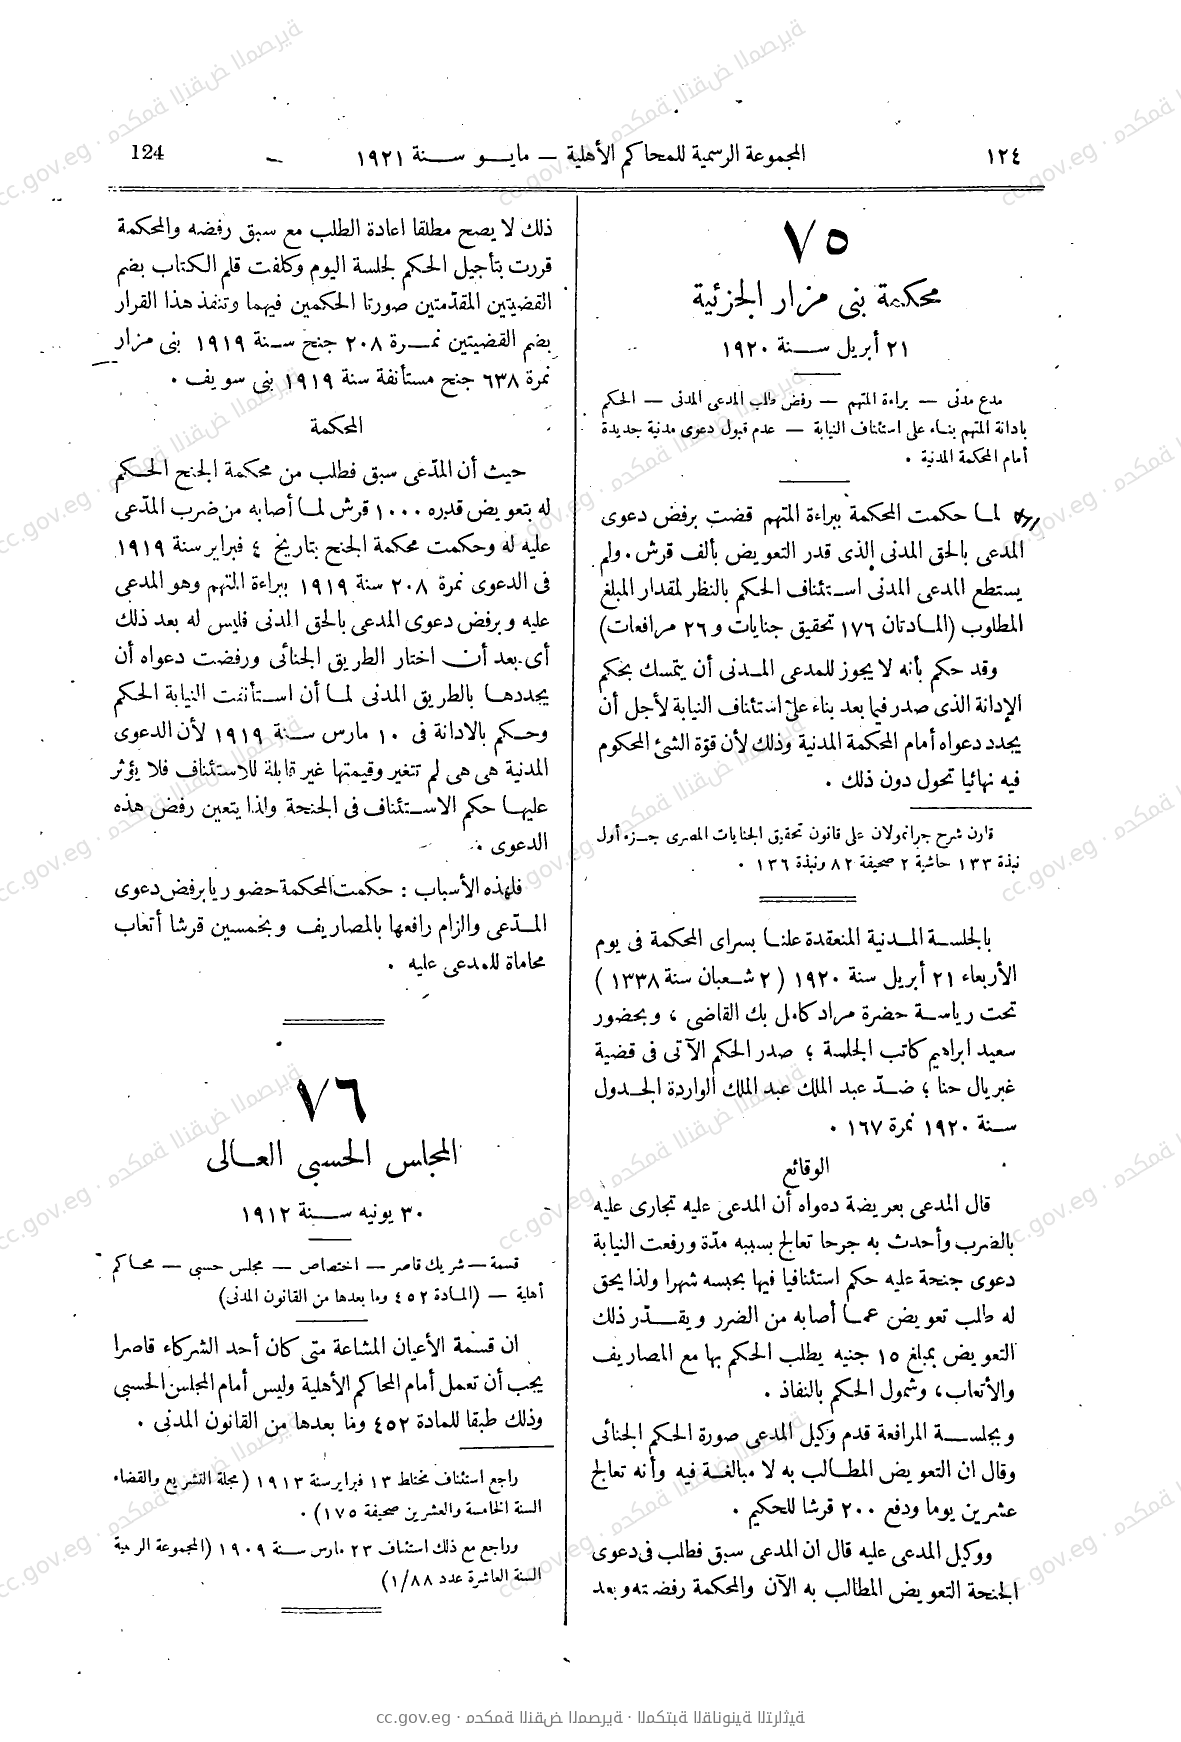 ١٢٤
المجموعة الرسمية للمحاكم الأهلية – مايو سنة ١٩٢١
124
٧٥
محكمة بنى مزار الجزئية
٢١ أبريل سنة ١٩٢٠
مدع مدنى – براءة المتهم – رفض طلب المدعى المدنى – الحكم
بادانة المتهم بناء على استئناف النيابة – عدم قبول دعوى مدنية جديدة
أمام المحكمة المدنية .
لما حكمت المحكمة ببراءة المتهم قضت برفض دعوى
المدعى بالحق المدنى الذى قدر التعويض بألف قرش . ولم
يستطع المدعى المدنى استئناف الحكم بالنظر لمقدار المبلغ
المطلوب (المادتان ١٧٦ تحقيق جنايات و ٢٦ مرافعات)
وقد حكم بأنه لا يجوز للمدعى المدنى أن يتمسك بحكم
الإدانة الذى صدر فيما بعد بناء على استئناف النيابة لأجل أن
يجدد دعواه أمام المحكمة المدنية وذلك لأن قوّة الشئ المحكوم
فيه نهائيا تحول دون ذلك .
قارن شرح جرانمولان على قانون تحقيق الجنايات المصرى جزء أول
نبذة ١٣٣ حاشية ٢ صحيفة ٨٢ ونبذة ١٣٦ .
بالجلسة المدنية المنعقدة علنا بسراى المحكمة فى يوم
الأربعاء ٢١ أبريل سنة ١٩٢٠ (٢ شعبان سنة ١٣٣٨)
تحت رياسة حضرة مراد كامل بك القاضى ، وبحضور
سعيد ابراهيم كاتب الجلسة ؛ صدر الحكم الآتى فى قضية
غبريال حنا ؛ ضدّ عبد الملك عبد الملك الواردة الجدول
سنة ١٩٢٠ نمرة ١٦٧ .
الوقائع
قال المدعى بعريضة دعواه أن المدعى عليه تجارى عليه
بالضرب وأحدث به جرحا تعالج بسببه مدّة ورفعت النيابة
دعوى جنحة عليه حكم استئنافيا فيها بحبسه شهرا ولذا يحق
له طلب تعويض عما أصابه من الضرر ويقدّر ذلك
التعويض بمبلغ ١٥ جنيه يطلب الحكم بها مع المصاريف
والأتعاب، وشمول الحكم بالنفاذ .
وبجلسة المرافعة قدم وكيل المدعى صورة الحكم الجنائى
وقال ان التعويض المطالب به لا مبالغة فيه وأنه تعالج
عشرين يوما ودفع ٢٠٠ قرشا للحكيم .
ووكيل المدعى عليه قال ان المدعى سبق فطلب فى دعوى
الجنحة التعويض المطالب به الآن والمحكمة رفضته وبعد
ذلك لا يصح مطلقا اعادة الطلب مع سبق رفضه والمحكمة
قررت بتأجيل الحكم لجلسة اليوم وكلفت قلم الكتاب بضم
القضيتين المقدّمتين صورتا الحكمين فيهما وتنفذ هذا القرار
بضم القضيتين نمرة ٢٠٨ جنح سنة ١٩١٩ بنى مزار
نمرة ٦٣٨ جنح مستأنفة سنة ١٩١٩ بنى سويف .
المحكمة
حيث أن المدّعى سبق فطلب من محكمة الجنح الحكم
له بتعويض قدره ١٠٠٠ قرش لما أصابه من ضرب المدّعى
عليه له وحكمت محكمة الجنح بتاريخ ٤ فبراير سنة ١٩١٩
فى الدعوى نمرة ٢٠٨ سنة ١٩١٩ ببراءة المتهم وهو المدعى
عليه وبرفض دعوى المدعى بالحق المدنى فليس له بعد ذلك
أى بعد أن اختار الطريق الجنائى ورفضت دعواه أن
يجددها بالطريق المدنى لما أن استأنفت النيابة الحكم
وحكم بالادانة فى ١٠ مارس سنة ١٩١٩ لأن الدعوى
المدنية هى هى لم تتغير وقيمتها غير قابلة للاستئناف فلا يؤثر
عليها حكم الاستئناف فى الجنحة ولذا يتعين رفض هذه
الدعوى .
فلهذه الأسباب : حكمت المحكمة حضوريا برفض دعوى
المدّعى والزام رافعها بالمصاريف وبخمسين قرشا أتعاب
محاماة للمدعى عليه .
٧٦
المجلس الحسبى العالى
٣٠ يونيه سنة ١٩١٢
قسمة – شريك قاصر – اختصاص – مجلس حسبى – محاكم
أهلية – (المادة ٤٥٢ وما بعدها من القانون المدنى)
ان قسمة الأعيان المشاعة متى كان أحد الشركاء قاصرا
يجب أن تعمل أمام المحاكم الأهلية وليس أمام المجلس الحسبى
وذلك طبقا للمادة ٤٥٢ وما بعدها من القانون المدنى .
راجع استئناف مختلط ١٣ فبراير سنة ١٩١٣ (مجلة التشريع والقضاء
السنة الخامسة والعشرين صحيفة ١٧٥) .
وراجع مع ذلك استئناف ٢٣ مارس سنة ١٩٠٩ (المجموعة الرسمية
السنة العاشرة عدد ١/٨٨)
cc.gov.eg · محكمة النقض المصرية · المكتبة القانونية التراثية